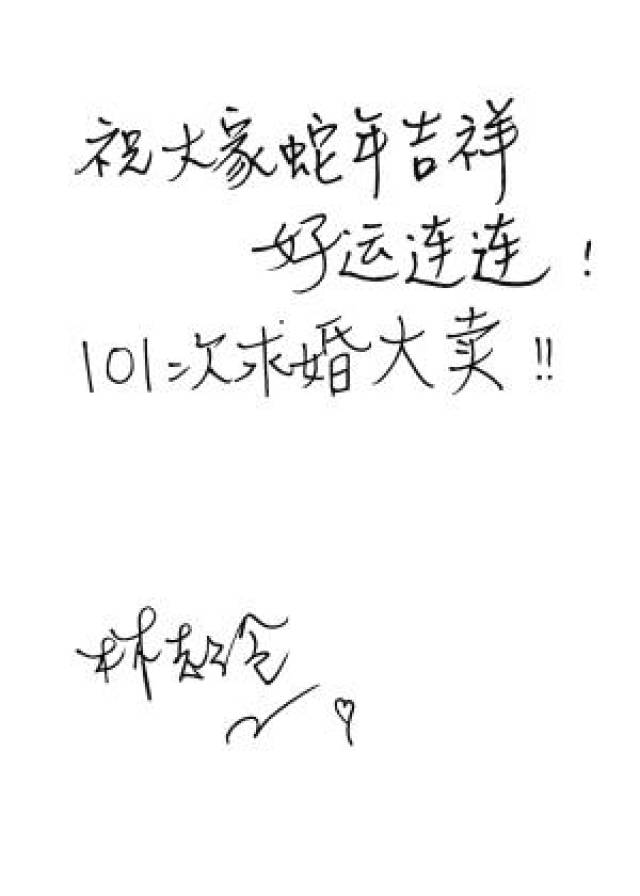 祝大家蛇年吉祥
好运连连!
101次求婚大卖!!
林志玲